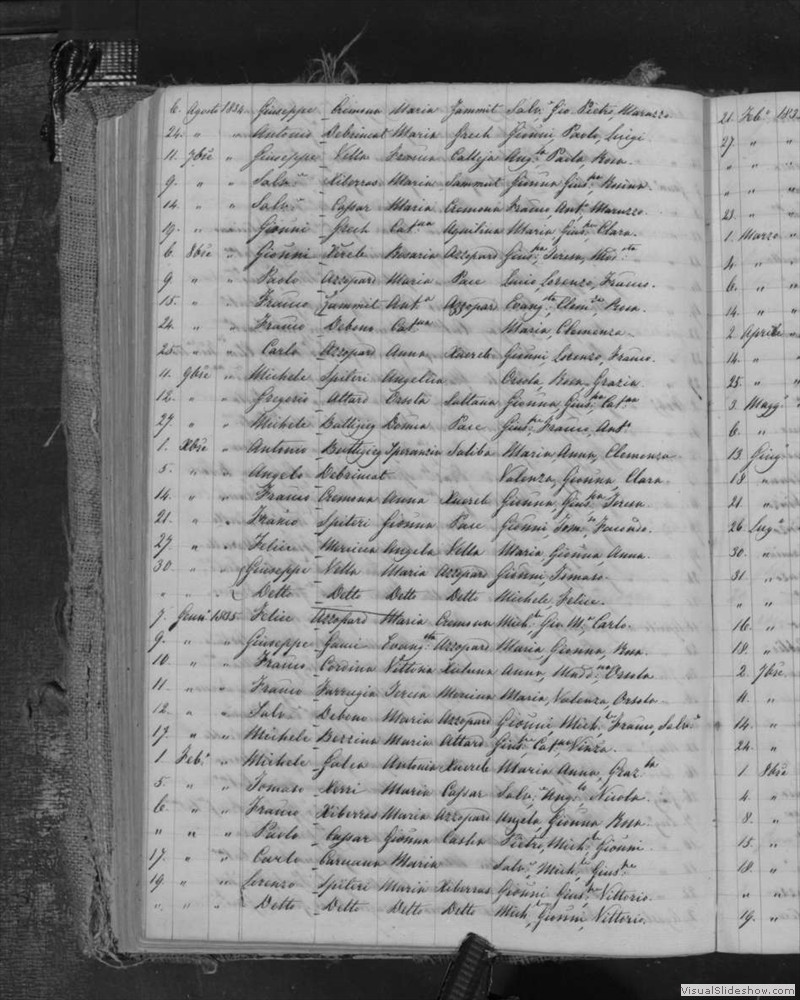 6. Agosto 1834 Giuseppe Cremona Maria Zammit Salv.e Gio Pietro, Maruzzo
24. " " Antonio Debrincat Maria Grech Giovni Paolo, Luigi
11. 7bre " Giuseppe Vella Franca Calleja Ang.la Paola, Rosa.
9. " " Salv.e Xiberras Maria Sammut Giovna Gius.pa
14. " " Salv.e Cassar Maria Cremona Franco, Ant.o Maruzzo.
19. " " Giovnni Grech Cat.na Aquilina Maria, Gius.pa Clara.
6. 8bre " Giovnni Xereb Rosaria Azzopard Gius.pa Teresa,
9. " " Paolo Azzopard Maria Pace Lucio, Lorenzo, Franco.
15. " " Franco Zammit Ant.a Azzopar Evang.ta Clem.za Rosa.
24. " " Franco Debono Cat.na Maria, Clemenza
25. " " Carlo Azzopard Anna Xuereb Giovnni Lorenzo, Franco.
11. 9bre " Michele Spiteri Angelica Orsola, Rosa, Grazia.
12. " " Gregorio Attard Orsola Sultana Giovnna, Gius.pa Cat.na
27. " " Michele Buttigieg Domca Pace Gius.pe Franco, Ant.o
1. Xbre " Antonio Buttigieg Speranza Saliba Maria Anna, Clemenza
5. " " Angelo Debrincat Valenza, Giovnna, Clara
14. " " Franco Cremona Anna Xuereb Giovnna, Gius.pa Teresa.
21. " " Franco Spiteri Giovnna Pace Giovnni, Tom.so
27. " " Felice Mercieca Angela Vella Maria, Giovnna, Anna.
30. " " Giuseppe Vella Maria Azzopard Giovnni, Tomaso
" " " Detto Detto Detto Detto Michele, Felice.
7. Genn.o 1835 Felice Azzopard Maria Cremona Mich.le Gio M.a Carlo.
9. " " Giuseppe Gauci Evang.ta Azzopard Maria Giovnna, Rosa.
10. " " Franco Cordina Vittoria Xuluna Anna, Madd.na Orsola
11. " " Franco Farrugia Teresa Mercieca Maria, Valenza, Orsola
12. " " Salv.e Debono Maria Azzopard Giovnni, Mich.le Franco, Salv.e
17. " " Michele Bezzina Maria Attard Gius.pa Cat.na Vinza.
1. Feb.o " Michele Galea Antonia Xuereb Maria Anna, Graz.la
5. " " Tomaso Xerri Maria Cassar Salv.e Ang.lo Nicola.
6. " " Franco Xiberras Maria Azzopard Angela, Giovnna Rosa
" " " Paolo Cassar Giovnna Pietro, Mich.le Giovnni
17. " " Carlo Caruana Maria Salv.e Mich.le Gius.pe
19. " " Lorenzo Spiteri Maria Xiberras Giovnni, Gius.pe Vittorio.
" " " Detto Detto Detto Detto Mich.le Giovnni, Vittorio.
21. Feb.o 183
27. "
" "
" "
23. "
1. Marzo "
4. "
6. "
14. "
2. Aprile "
14. "
25. "
3. Magg.o
6. "
13. Giug.o
18. "
21. "
26. Lug.o
30. "
31. "
" "
16. "
18. "
2. 7bre
11. "
14. "
24. "
1. 8bre
4. "
8. "
15. "
18. "
" "
19. "
VisualSlideshow.com